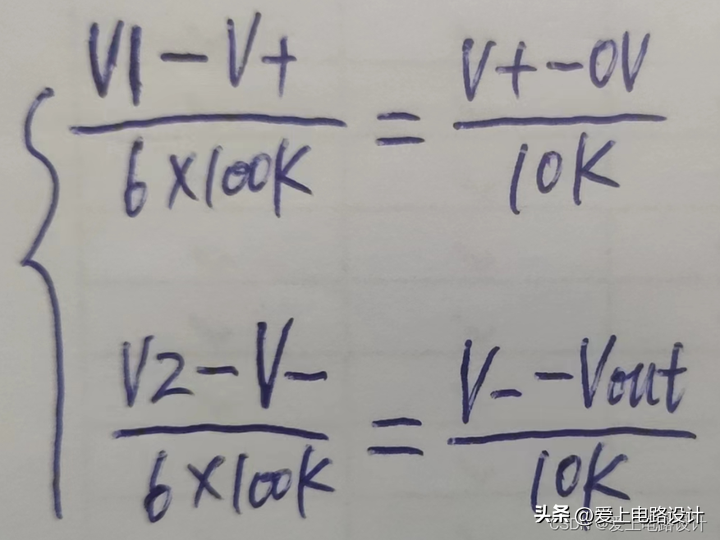 V1-V+
6×100K
=
V+-0V
10K
V2-V-
6×100K
=
V--Vout
10K
头条 @爱上电路设计
CSDN @爱上电路设计